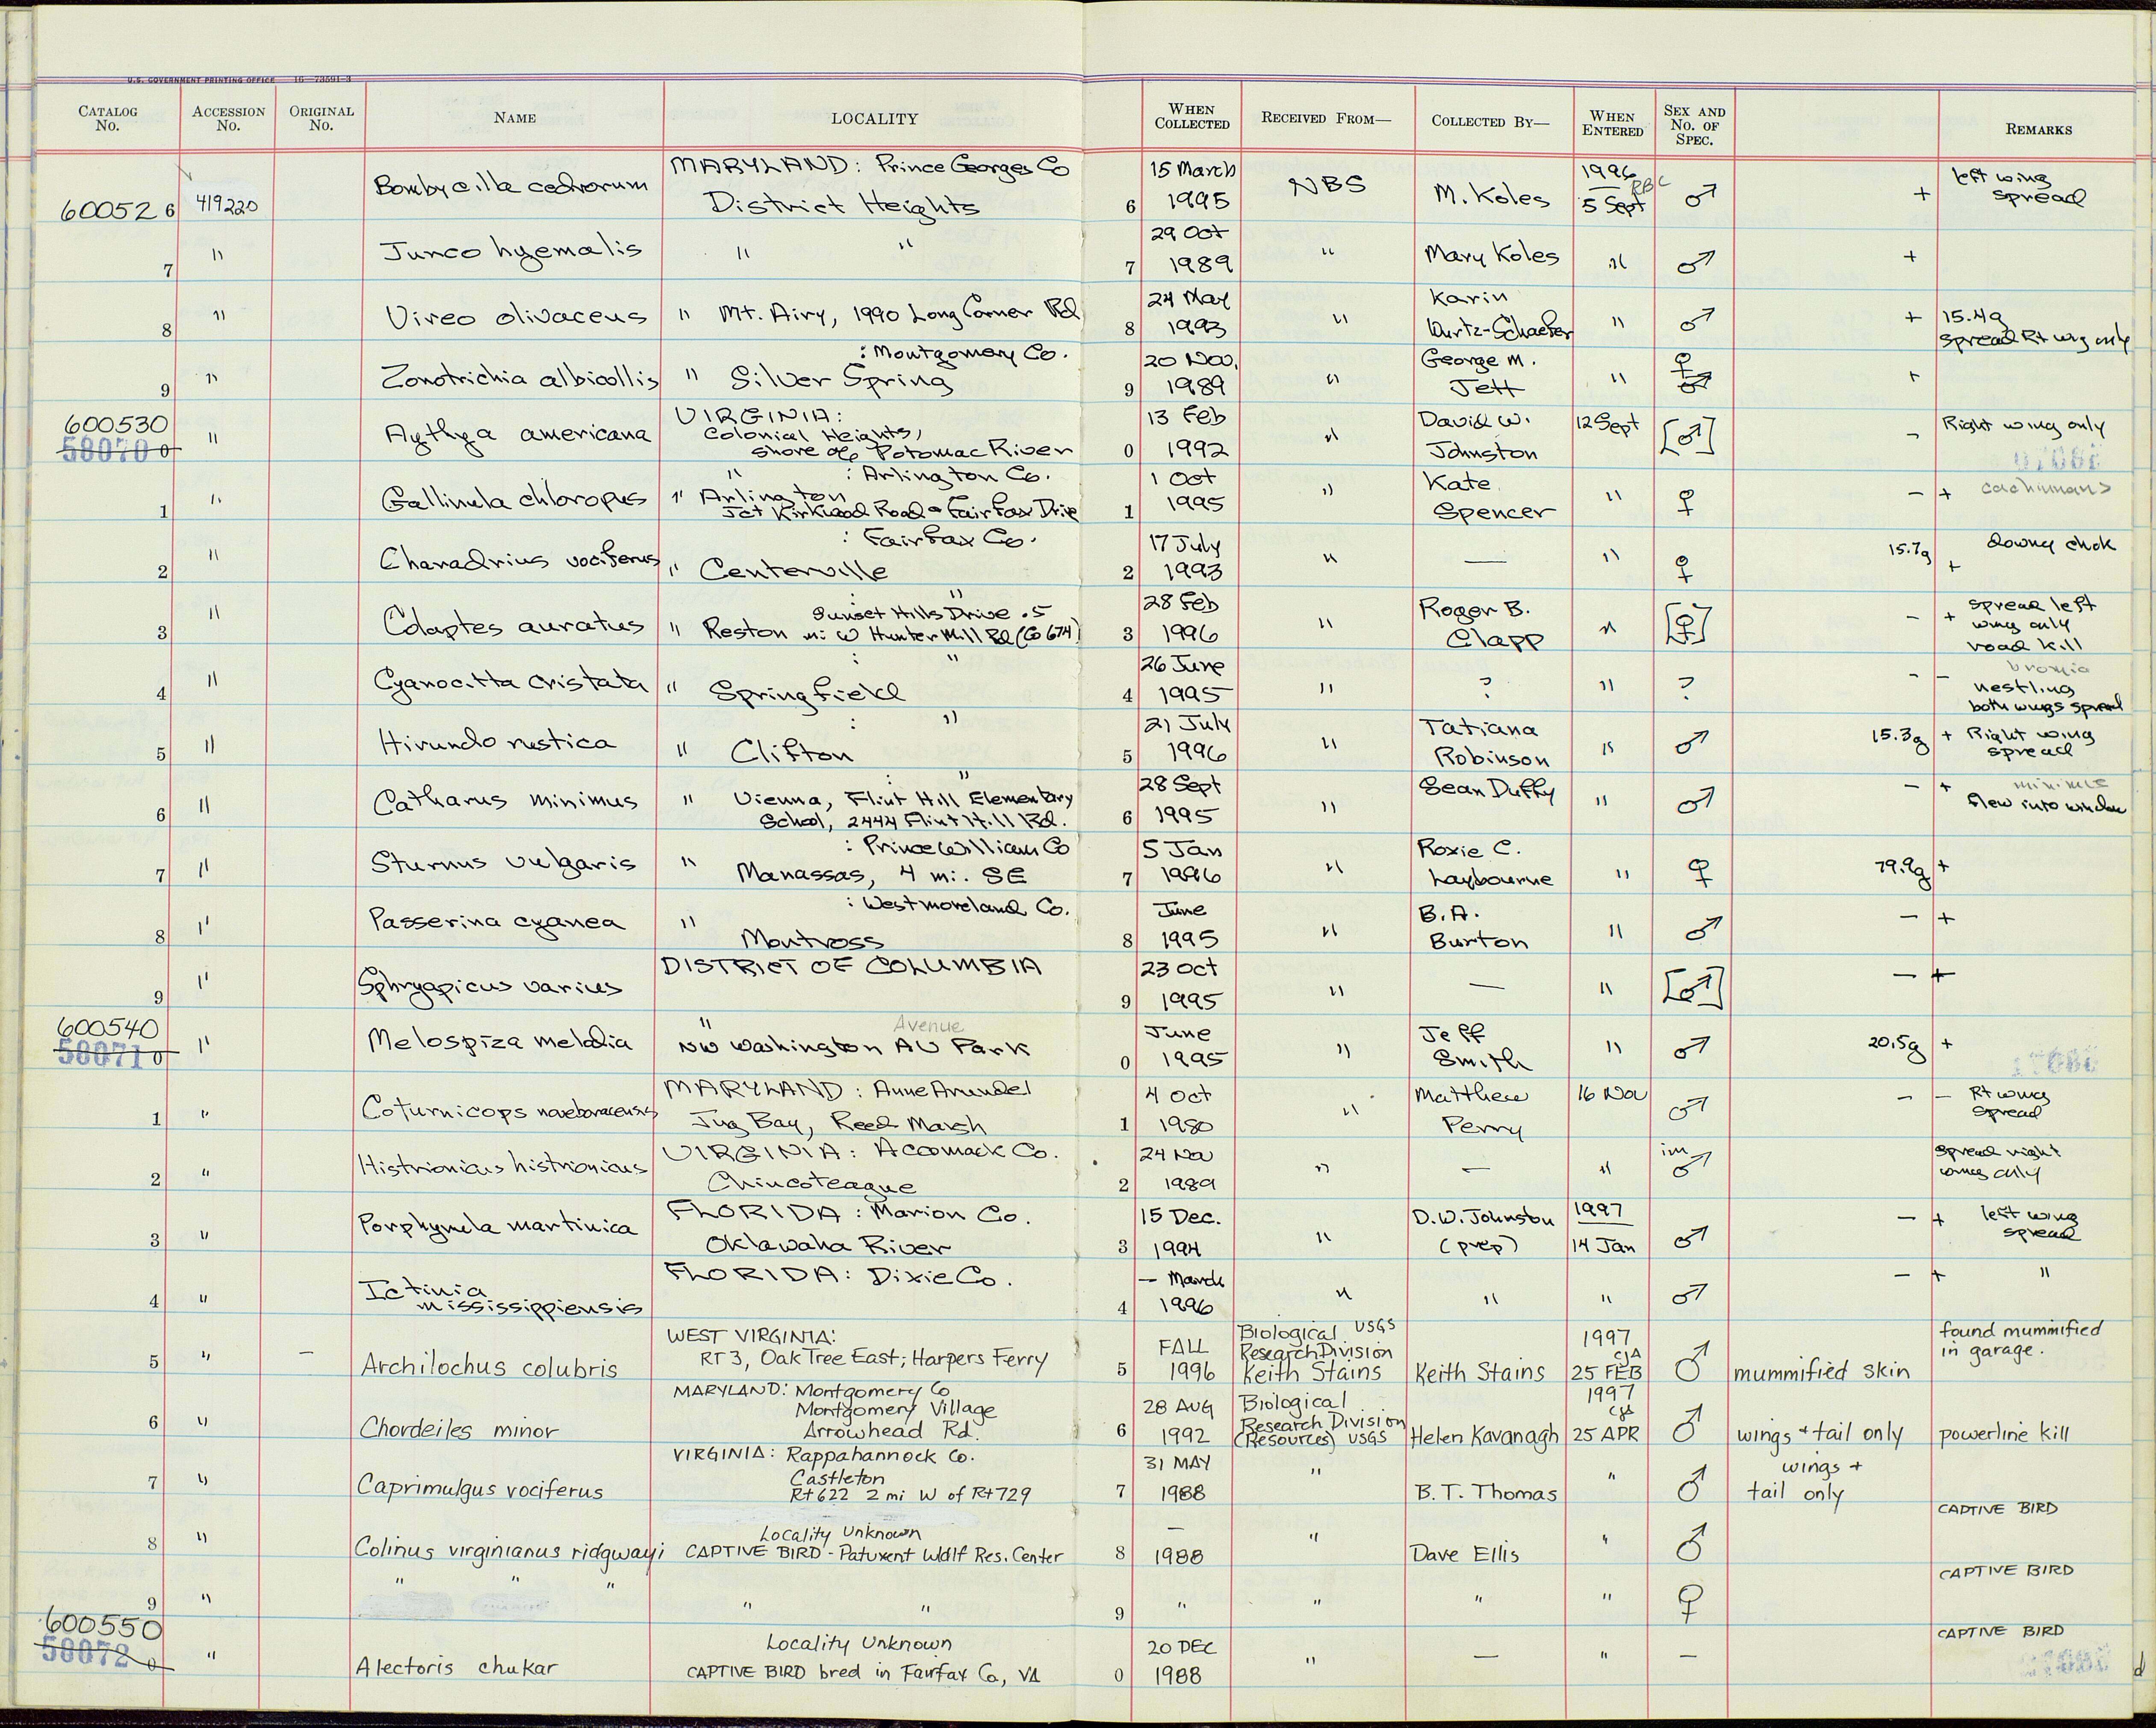 U.S. GOVERNMENT PRINTING OFFICE 16—73591-3
CATALOG No. ACCESSION No. ORIGINAL No. NAME LOCALITY WHEN COLLECTED RECEIVED FROM— COLLECTED BY— WHEN ENTERED SEX AND No. OF SPEC. REMARKS
MARYLAND: Prince Georges Co 15 March 1996 left wing
600526 419220 Bombycilla cedrorum District Heights 6 1995 NBS M. Koles RBC 5 Sept ♂ + spread
29 Oct
7 " Junco hyemalis " " 7 1989 " Mary Koles " ♂ +
24 May Karin
8 " Vireo olivaceus " Mt. Airy, 1990 Long Corner Rd 8 1993 " Wurtz-Schaefer " ♂ + 15.4g
spread Rt wing only
: Montgomery Co. 20 Nov. George M. ♀
9 " Zonotrichia albicollis " Silver Spring 9 1989 " Jett " ♂ +
600530 VIRGINIA: 13 Feb David W. 12 Sept Right wing only
58070 0 " Aythya americana Colonial Heights, 0 1992 " Johnston [♂] -
shore of Potomac River
" : Arlington Co. 1 Oct Kate
1 " Gallinula chloropus " Arlington 1 1995 " Spencer " ♀ - + cachinnans
Jct Kirkwood Road + Fairfax Drive
: Fairfax Co. 17 July downy chick
2 " Charadrius vociferus " Centerville 2 1993 " — " ♀ 15.7g +
: " 28 Feb Roger B. spread left
Sunset Hills Drive .5
3 " Colaptes auratus " Reston mi W Hunter Mill Rd (Co 674) 3 1996 " Clapp " [♀] - + wing only
road kill
: " 26 June bromia
4 " Cyanocitta cristata " Springfield 4 1995 " ? " ? - - nestling
both wings spread
: " 21 July Tatiana
5 " Hirundo rustica " Clifton 5 1996 " Robinson " ♂ 15.3g + Right wing
spread
: " 28 Sept Sean Duffy minimus
6 " Catharus minimus " Vienna, Flint Hill Elementary 6 1995 " " ♂ - + flew into window
School, 2444 Flint Hill Rd.
: Prince William Co 5 Jan Roxie C.
7 " Sturnus vulgaris " Manassas, 4 mi. SE 7 1996 " Laybourne " ♀ 79.9g +
: Westmoreland Co. June B.A.
8 " Passerina cyanea " Montross 8 1995 " Burton " ♂ - +
DISTRICT OF COLUMBIA 23 Oct
9 " Sphryapicus varius 9 1995 " — " [♂] - +
600540 " Avenue June Jeff
58071 0 " Melospiza melodia NW Washington AU Park 0 1995 " Smith " ♂ 20.5g +
MARYLAND: Anne Arundel 4 Oct Matthew 16 Nov Rt wing
1 " Coturnicops noveboracensis Jug Bay, Reed Marsh 1 1980 " Perry ♂ - - spread
VIRGINIA: Accomack Co. 24 Nov im spread right
2 " Histrionicus histrionicus Chincoteague 2 1989 " — " ♂ wing only
FLORIDA: Marion Co. 15 Dec. D.W. Johnston 1997 left wing
3 " Porphyrula martinica Oklawaha River 3 1994 " (prep) 14 Jan ♂ - + spread
FLORIDA: Dixie Co. — March
4 " Ictinia mississippiensis 4 1996 " " " ♂ - + "
WEST VIRGINIA: FALL Biological USGS 1997 found mummified
RT 3, Oak Tree East; Harpers Ferry Research Division CJA in garage.
5 " — Archilochus colubris 5 1996 Keith Stains Keith Stains 25 FEB ♂ mummified skin
MARYLAND: Montgomery Co 28 AUG Biological 1997
Montgomery Village Research Division CJA
6 " Chordeiles minor Arrowhead Rd. 6 1992 (Resources) USGS Helen Kavanagh 25 APR ♂ wings + tail only powerline kill
VIRGINIA: Rappahannock Co. 31 MAY wings +
Castleton
7 " Caprimulgus vociferus Rt 622 2 mi W of Rt 729 7 1988 " B.T. Thomas " ♂ tail only
Locality Unknown — CAPTIVE BIRD
8 " Colinus virginianus ridgwayi CAPTIVE BIRD - Patuxent Wdlf Res. Center 8 1988 " Dave Ellis " ♂
CAPTIVE BIRD
9 " " " " " " 9 " " " " ♀
600550 Locality Unknown 20 DEC CAPTIVE BIRD
58072 0 " Alectoris chukar CAPTIVE BIRD bred in Fairfax Co, VA 0 1988 " — " —